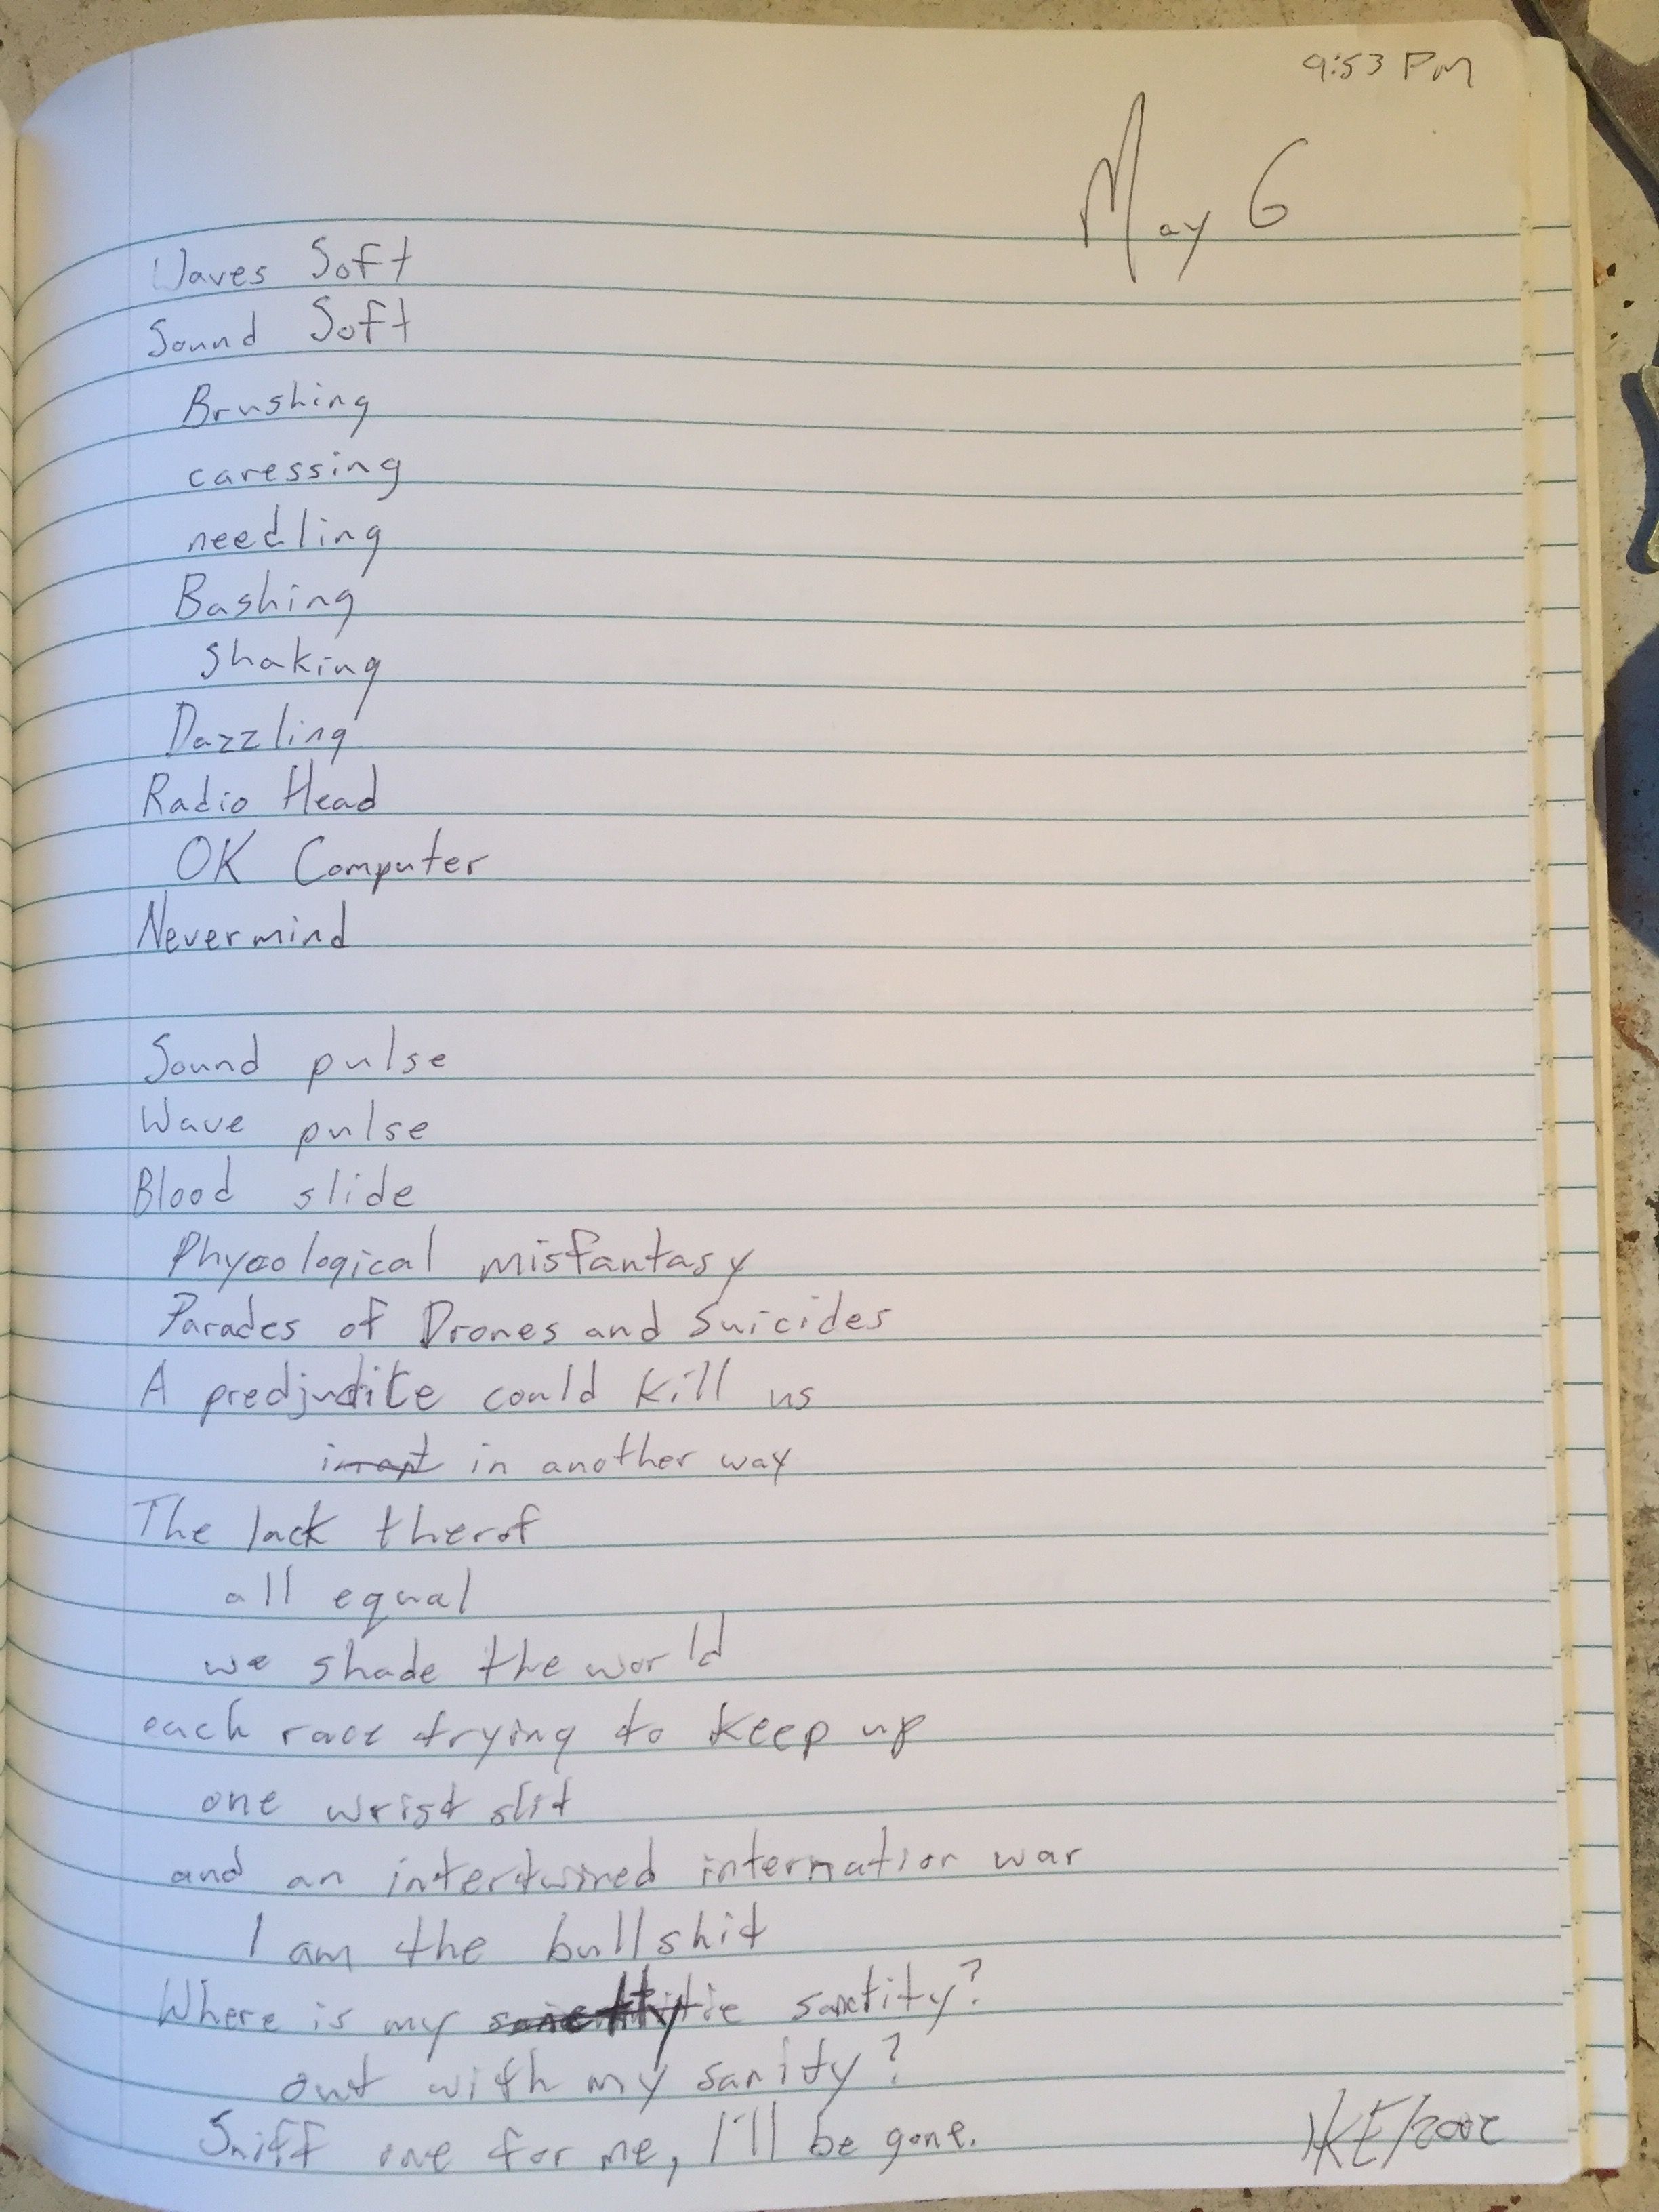 9:53 PM
May 6
Waves Soft
Sound Soft
Brushing
caressing
needling
Bashing
shaking
Dazzling
Radio Head
OK Computer
Nevermind
Sound pulse
Wave pulse
Blood slide
Phycological misfantasy
Parades of Drones and Suicides
A predjudice could kill us
in another way
The lack therof
all equal
we shade the world
each race trying to keep up
one wrist slit
and an intertwined internation war
I am the bullshit
Where is my sanctity?
out with my sanity?
Sniff one for me, I'll be gone.